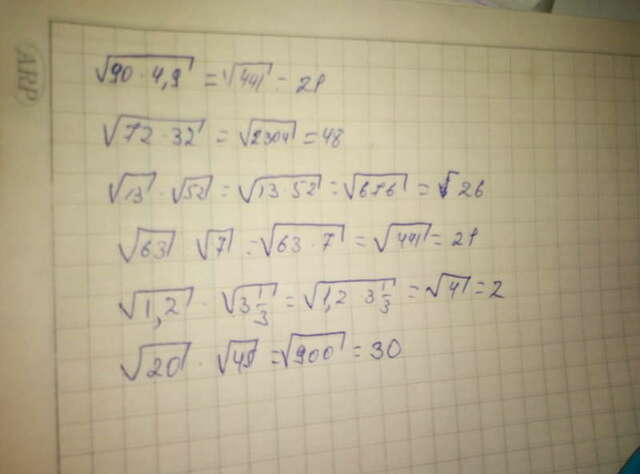 ARP
√90 · 4,9 = √441 = 21
√72 · 32 = √2304 = 48
√13 · √52 = √13 52 = √676 = √ 26
√63 √7 = √63 · 7 = √441 = 21
√1,2 · √3 1/3 = √1,2 3 1/3 = √4 = 2
√20 · √45 = √900 = 30